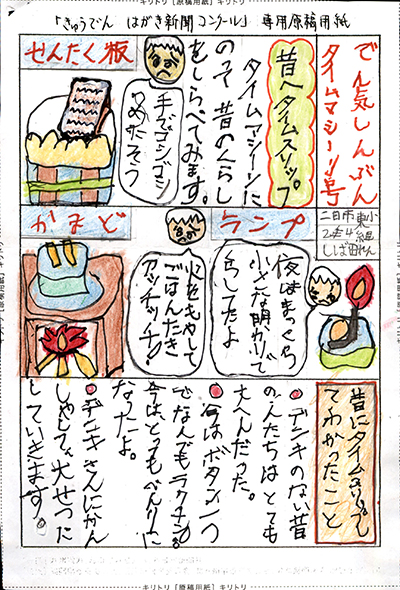 キリトリ [原稿用紙] キリトリ
「きゅうでん はがき新聞コンクール」 専用原稿用紙
でん気しんぶん
タイムマシーン号
二日市東小
2年4組
昔へタイムスリップ
タイムマシーンに
のって昔のくらし
をしらべてみます。
せんたく板
手でゴシゴシ
つめたそう
ランプ
夜はまっくら
小さな明かりで
くらしてたよ
かまど
火をもやして
ごはんたき
アッチッチ!
昔にタイムスリップし
てわかったこと
デンキのない昔
の人たちはとても
大へんだった。
今はボタン一つ
でなんでもラクチン。
今は、とってもべんりに
なったよ。
デンキさんにかん
しゃして、大せつに
していきます。
キリトリ [原稿用紙] キリトリ